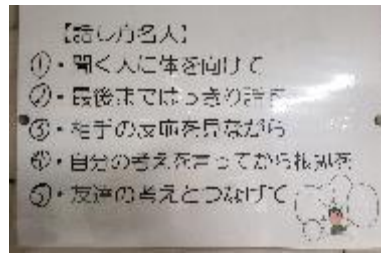 【話し方名人】
①・聞く人に体を向けて
②・最後まではっきり話す
③・相手の反応を見ながら
④・自分の考えを言ってから根拠を
⑤・友達の考えとつなげて